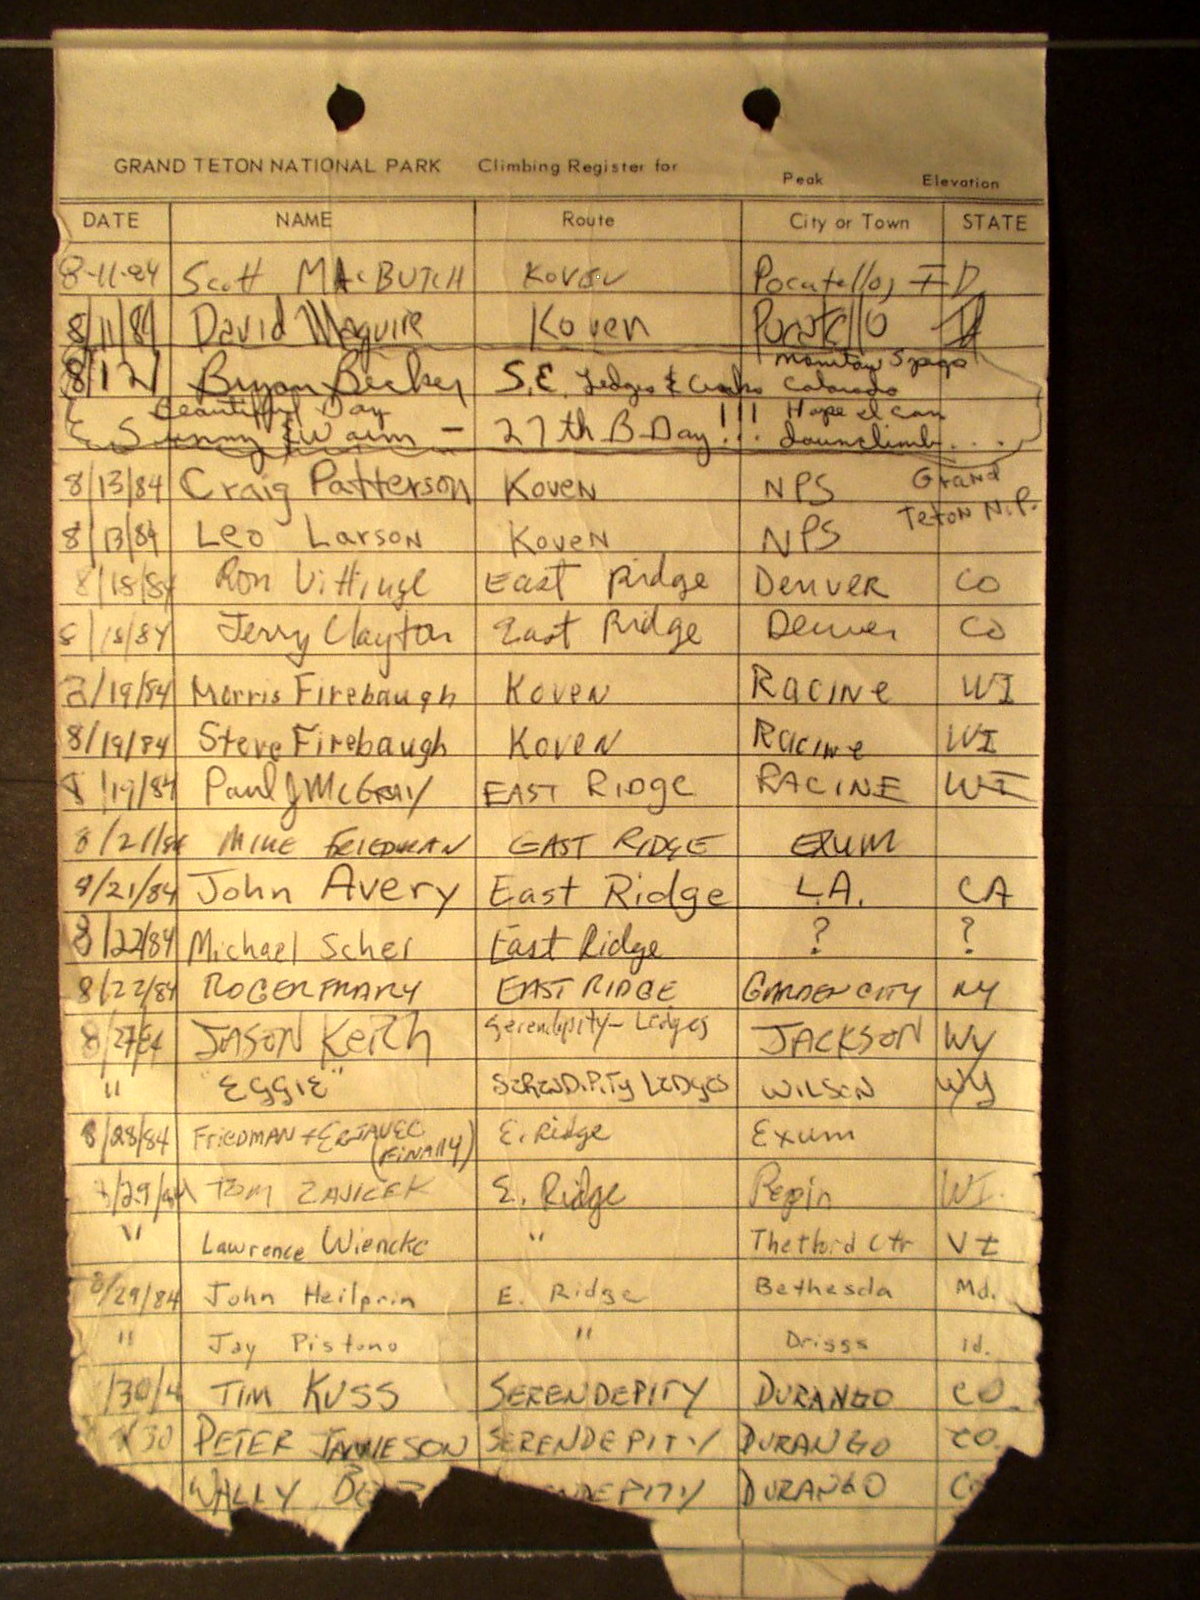 GRAND TETON NATIONAL PARK Climbing Register for Peak Elevation
DATE NAME Route City or Town STATE
8-11-84 Scott MacBUTCH Koven Pocatello, ID
8/11/84 David Maguire Koven Pocatello ID
8/12/ Bryan Becker S.E. Ledges & Cracks Manitou Spgs Colorado
Beautiful Day
Sunny & Warm - 27th B-Day!!! Hope I can downclimb....
8/13/84 Craig Patterson Koven NPS Grand
8/13/84 Leo Larson Koven NPS Teton N.P.
8/18/84 Ron East Ridge Denver CO
8/18/84 Jerry Clayton East Ridge Denver CO
8/19/84 Morris Firebaugh Koven Racine WI
8/19/84 Steve Firebaugh Koven Racine WI
8/19/84 Paul J McGray EAST RIDGE RACINE WI
8/21/84 MIKE FRIEDMAN EAST RIDGE EXUM
8/21/84 John Avery East Ridge L.A. CA
8/22/84 Michael Scher East Ridge ? ?
8/22/84 ROGER FRARY EAST RIDGE GARDEN CITY NY
8/27/84 JASON Keith Serendipity- Ledges JACKSON WY
" "EGGIE" SERENDIPITY LEDGES WILSON WY
8/28/84 FRIEDMAN + ERJAVEC (FINALLY) E. Ridge Exum
8/29/84 TOM ZAJICEK E. Ridge Pepin WI.
" Lawrence Wiencke " Thetford Ctr Vt
8/29/84 John Heilprin E. Ridge Bethesda Md.
" Jay Pistono " Driggs id.
/30/4 TIM KUSS SERENDEPITY DURANGO CO.
30 PETER JAMIESON SERENDEPITY DURANGO CO.
WALLY ENDEPITY DURANGO CO